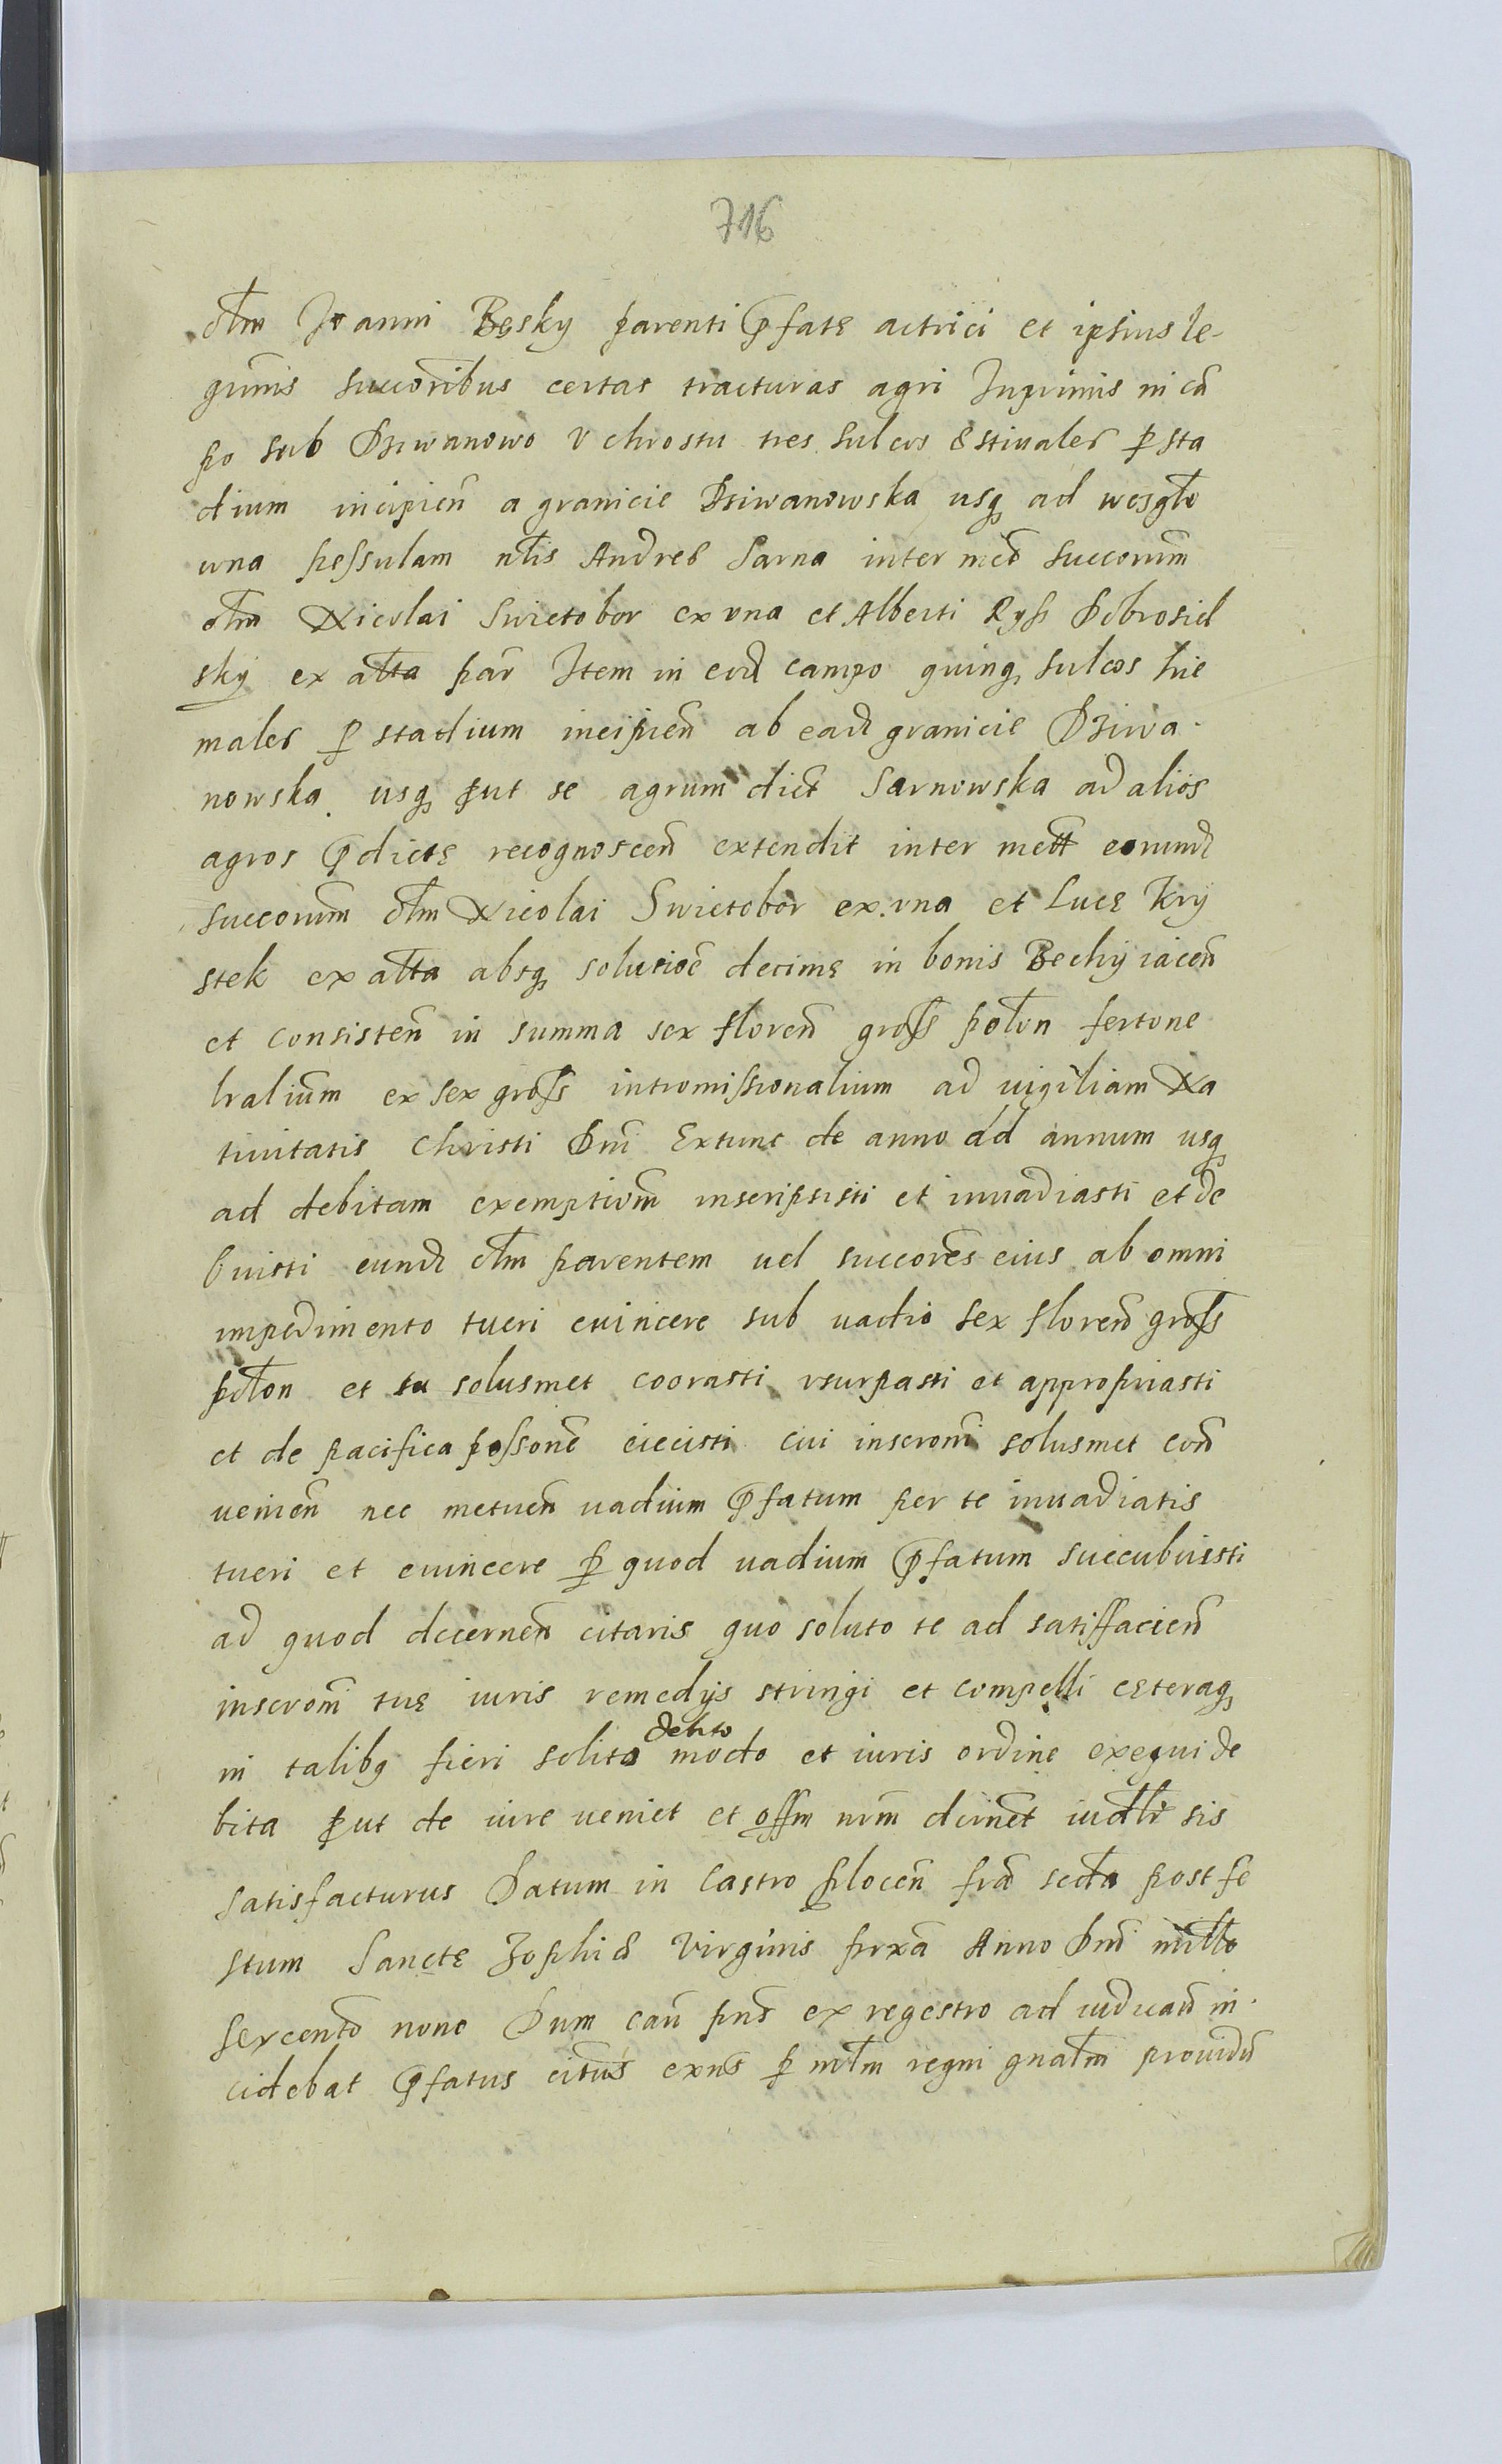 716
olim Joanni Bęsky parenti p̃fatę actrici et ipsius le-
gm̃is succor̃ibus certas tracturas agri Inprimis in cã
po sub Dziwanowo v chrostu tres sulcos Estiuales ꝑ sta
dium incipieñ a granicie Dziwanowska usq ad wozglo
una pessulam nl̃is Andreę Sarna inter med̃ succorum̃
olm̃ Nicolai Swietobor ex vna et Alberti Ryss Dobrosiel
sky ex alta par̃ Item in eod̃ campo quinq sulcos hie
males ꝑ stadium incipieñ ab ead̃ granicie Dziwa-
nowska usq ꝓut se agrum dict̃ Sarnowska ad alios
agros p̃dictę recognosceñ extendit inter mett̃ eorund̃
succorum̃ olm̃ Nicolai Swietobor ex vna et Lucę Kry
stek ex alta absq solutioẽ decimę in bonis Bechy iaceñ
et consisteñ in summa sex floreñ gross polon fertone
lralium̃ ex sex gross intromissionalium ad vigiliam Na
tiuitatis Christi Dñi Extunc de anno ad annum usq
ad debitam exemptiom̃ inscripsisti et inuadiasti et de
buisti eund̃ olm̃ parentem uel succores̃ eius ab omni
impedimento tueri euincere sub uadio sex floreñ gross
polon et tu solusmet coorasti vsurpasti et appropriasti
et de pacifica possonẽ eiecisti cui inscrom̃i solusmet coñ
uenieñ nec metueñ uadium p̃fatum per te inuadiatis
tueri et euincere ꝑ quod uadium p̃fatum succubuissti
ad quod decerneñ citaris quo soluto te ad satisfacieñ
inscrom̃i tuę iuris remedÿs stringi et compelli cęteraq
in talibq fieri solita debito modo et iuris ordine exequi de
bita ꝓut de iure ueniet et offm nr̃m decrnet̃ iudl̃r sis
satisfacturus Datum in Castro Ploceñ fr̃a scda post fe
stum Sanctę Zophię Virginis prxã Anno Dñi millo
sexcento nono Dum cañ pñs ex regestro ad iudicañ in-
cidebat p̃fatus citus̃ exñs ꝑ mlm̃ regni gnalm̃ prouidũ